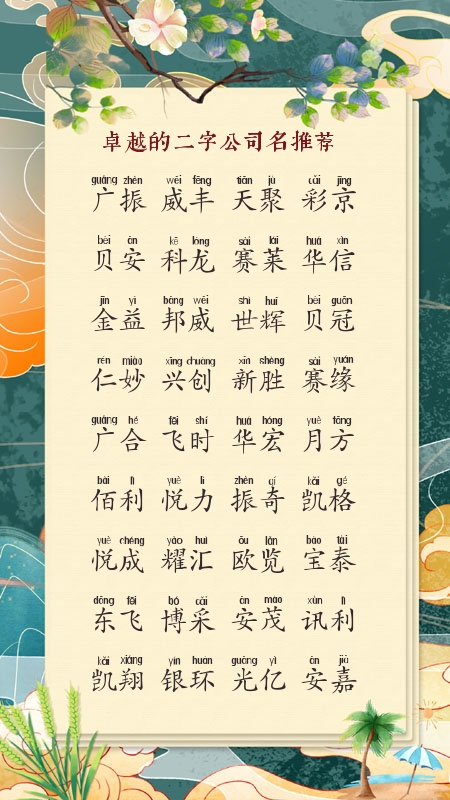 卓越的二字公司名推荐
guǎng zhèn wēi fēng tiān jù cǎi jīng
广振 威丰 天聚 彩京
bèi ān kē lóng sài lái huá xìn
贝安 科龙 赛莱 华信
jīn yì bāng wēi shì huī bèi guān
金益 邦威 世辉 贝冠
rén miào xīng chuàng xīn shèng sài yuán
仁妙 兴创 新胜 赛缘
guǎng hé fēi shí huá hóng yuè fāng
广合 飞时 华宏 月方
bǎi lì yuè lì zhèn qí kǎi gé
佰利 悦力 振奇 凯格
yuè chéng yào huì ōu lǎn bǎo tài
悦成 耀汇 欧览 宝泰
dōng fēi bó cǎi ān mào xùn lì
东飞 博采 安茂 讯利
kǎi xiáng yín huán guāng yì ān jiā
凯翔 银环 光亿 安嘉